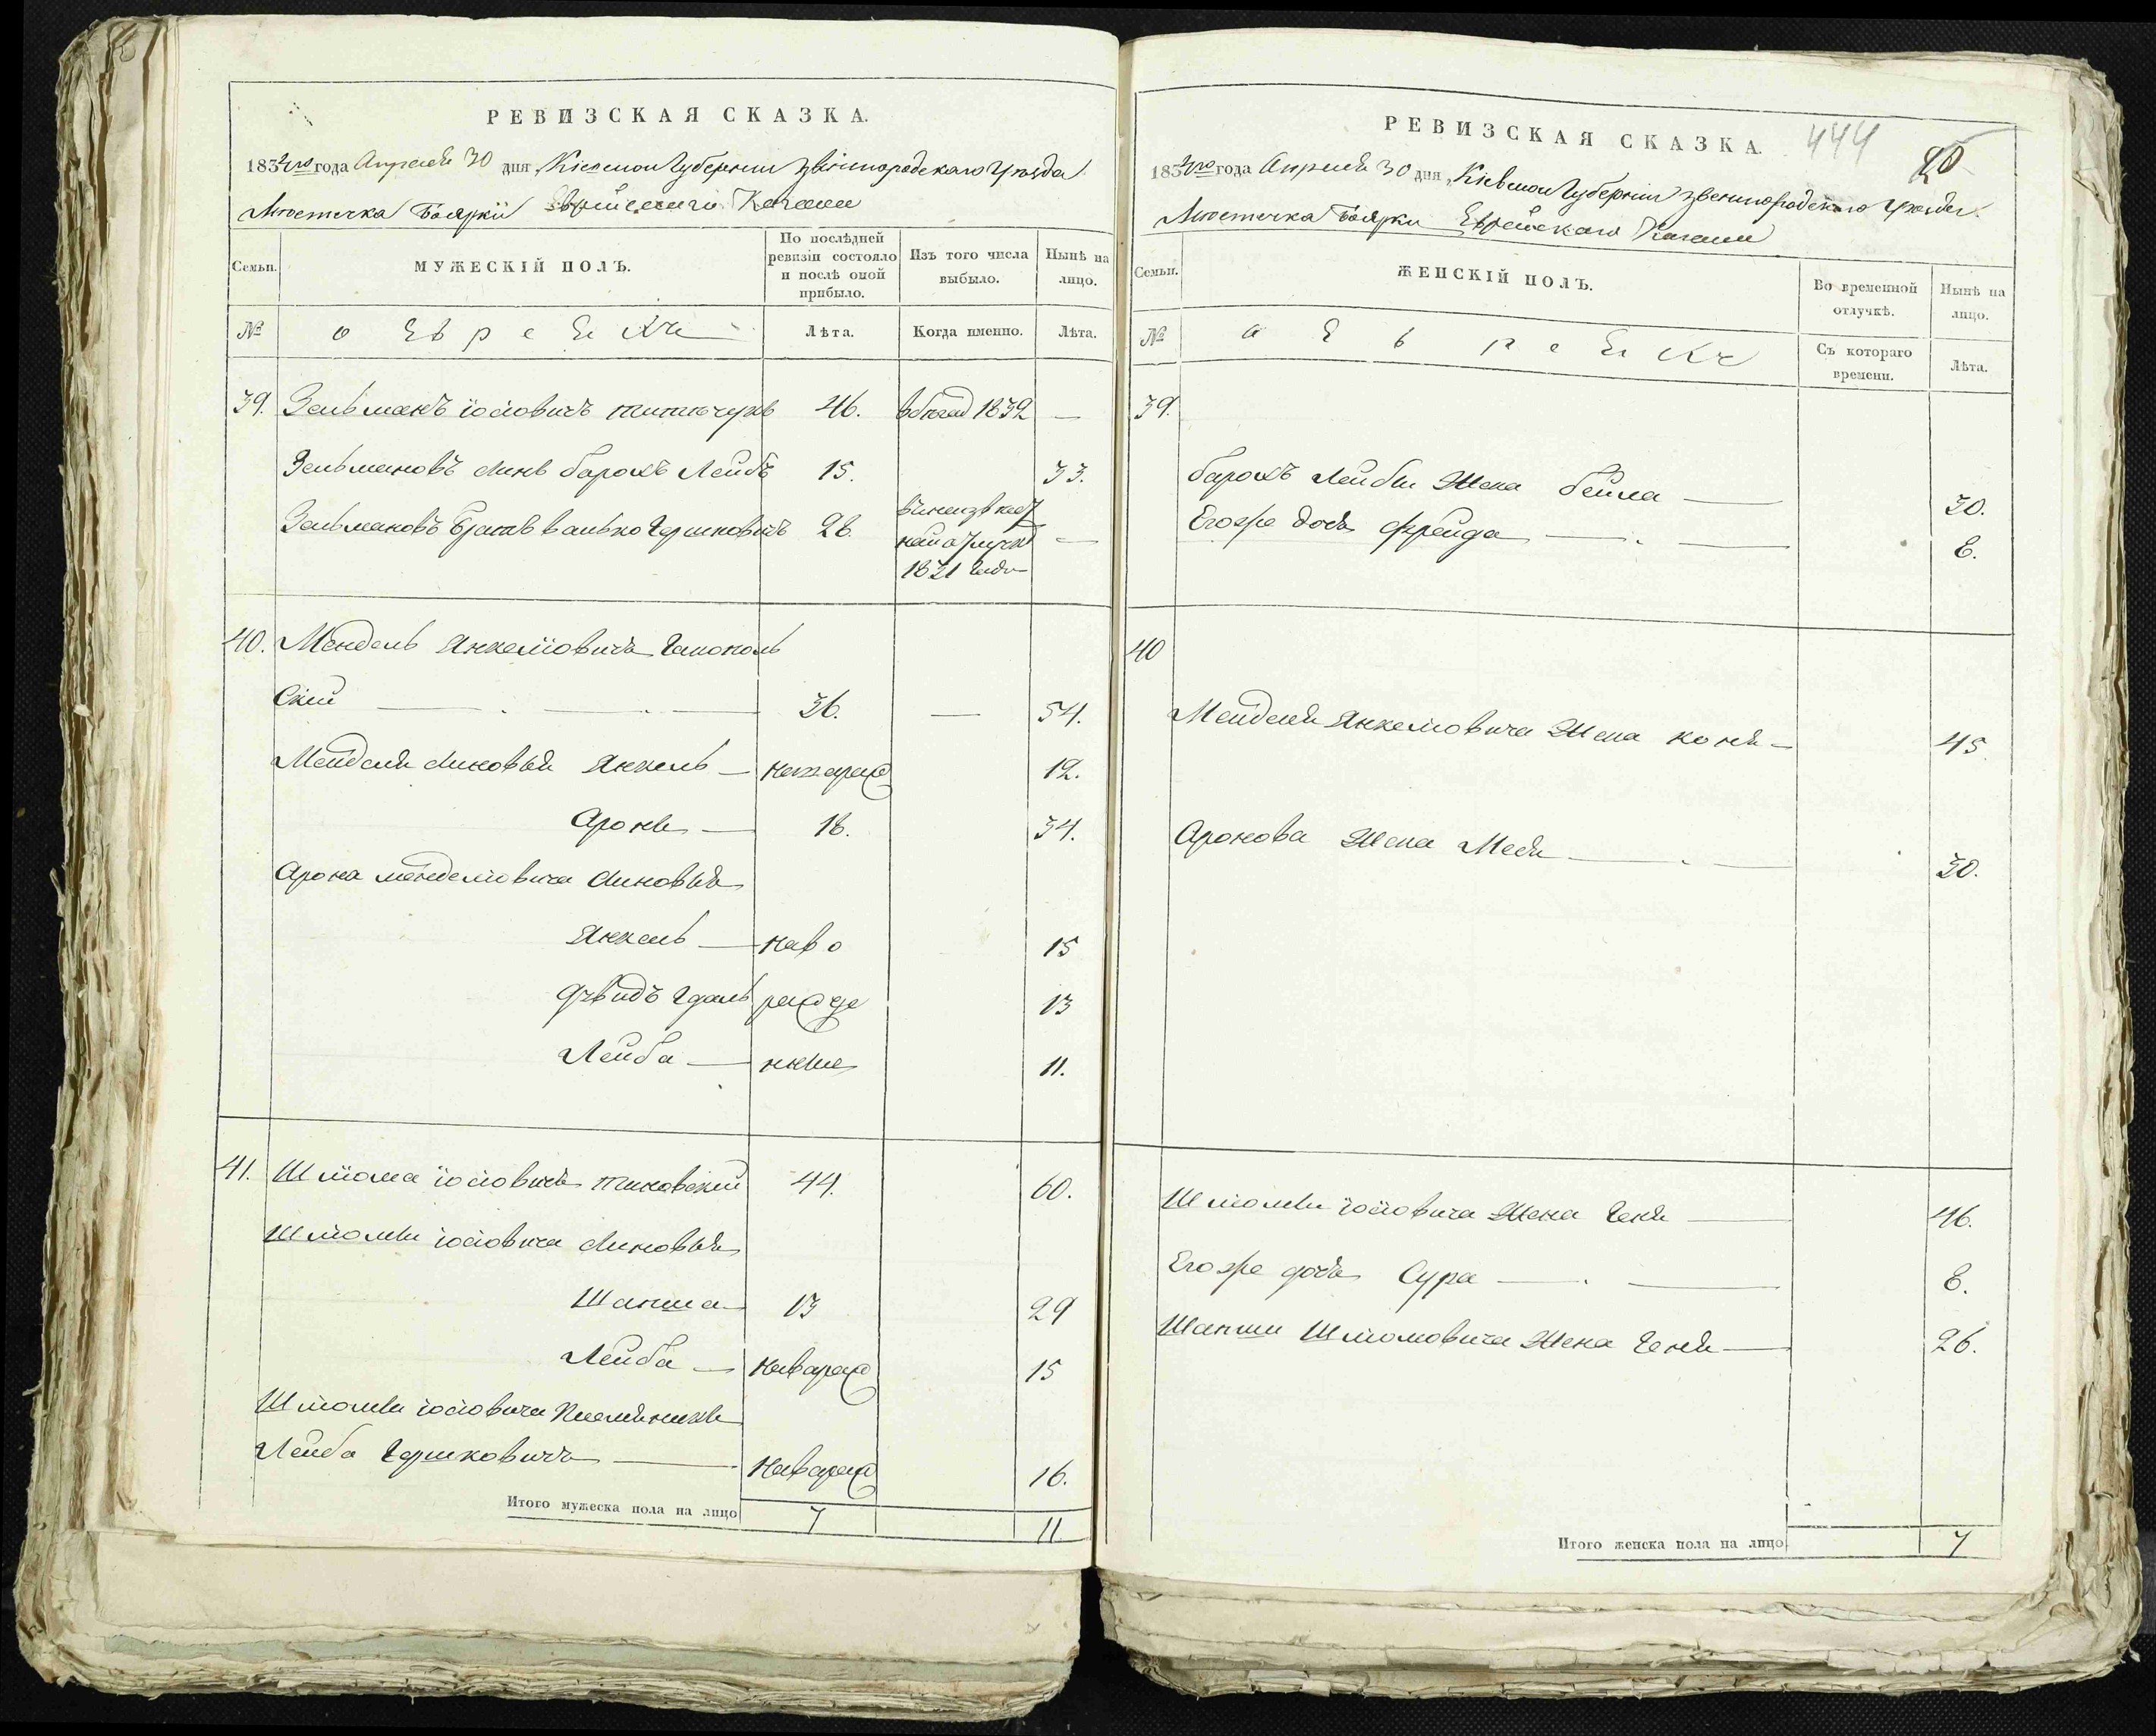 РЕВИЗСКАЯ СКАЗКА.
1834го года Апреля 30 дня, Кіевской Губерніи Звенигородского Уезда
Местечка Боярки Еврейского Кагала
Семьи.
МУЖЕСКІЙ ПОЛЪ.
По послѣдней ревизіи состояло и послѣ оной прибыло.
Изъ того числа выбыло.
Нынѣ на лицо.
№
о Евреяхъ
Лѣта.
Когда именно.
Лѣта.
39. Зельманъ Іосіовичъ 46. 1832 —
Зельмановъ синъ Барохъ Лейбъ 15. 33.
Зельмановъ Братъ Валько Гершковичъ 28. —
1831 года
40. Мендель Янкеліовичъ Гапополь
ский — 36. — 54.
Менделя синовья Янкель — 12.
Аронъ — 18. 34.
Арона Менделіовича синовья
Янкель — наво 15
Дувидъ Удаль рожде 13
Лейба — нные 11.
41. Шліома Іосіовичъ Тиновский 44. 60.
Шліомы Іосіовича синовья
Шапша 13 29
Лейба — Новорож 15
Шліомы Іосіовича Племянникъ
Лейба Гершковичъ — Новорож 16.
Итого мужеска пола на лицо 7 11.
РЕВИЗСКАЯ СКАЗКА. 444
1834го года Апреля 30 дня, Кіевской Губерніи Звенигородского Уезда.
Местечка Боярки Еврейского Кагала
Семьи.
ЖЕНСКІЙ ПОЛЪ.
Во временной отлучкѣ.
Нынѣ на лицо.
№
о Евреяхъ
Съ котораго времени.
Лѣта.
39.
Барохъ Лейбы Жена Бейла — 30.
Егоже дочь Фрейда — 8.
40
Менделя Янкеліовича Жена Коня — 45.
Аронова Жена Меся — 30.
Шліомы Іосіовича Жена Геня — 46.
Егоже дочь Сура — 8.
Шапши Шліомовича Жена Геня — 26.
Итого женска пола на лицо 7